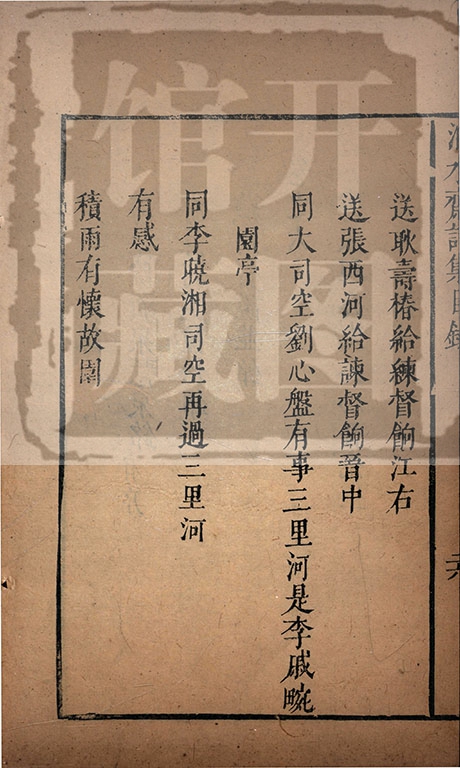 齋詩集目錄
送耿壽椿給練督餉江右
送張西河給諫督餉晉中
同大司空劉心盤有事三里河是李戚畹
園亭
同李曉湘司空再過三里河
有感
積雨有懷故園
开图
馆藏